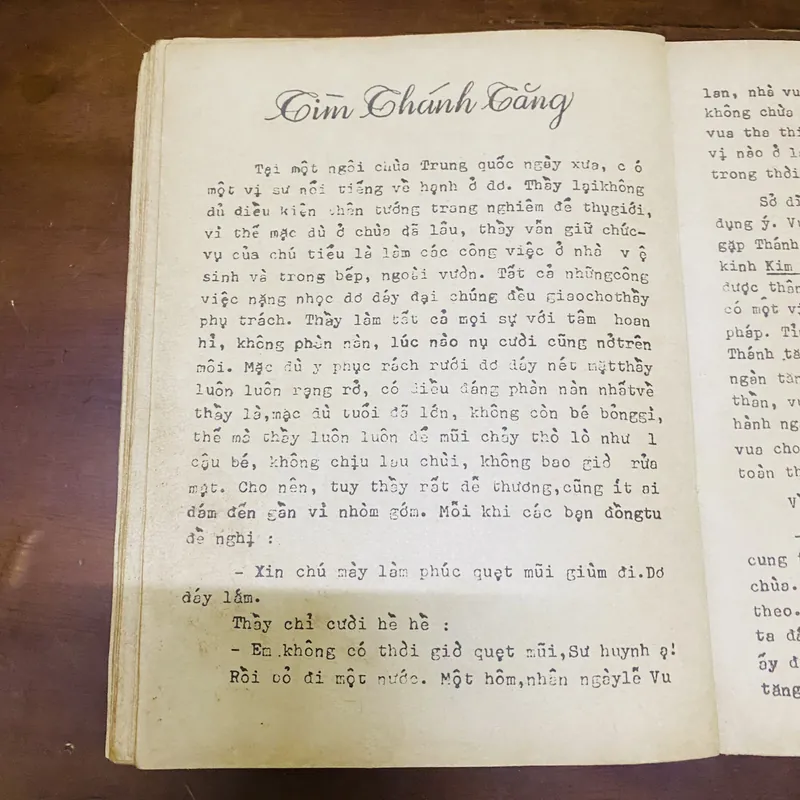 Tìm Thánh Tăng
Tại một ngôi chùa Trung quốc ngày xưa, c ó
một vị sư nổi tiếng về hạnh ở dơ. Thầy lạikhông
đủ điều kiện thân tướng trang nghiêm để thụgiới,
vì thế mặc dù ở chùa đã lâu, thầy vẫn giữ chức-
vụ của chú tiểu là làm các công việc ở nhà v ệ
sinh và trong bếp, ngoài vườn. Tất cả nhữngcông
việc nặng nhọc dơ dáy đại chúng đều giaochothầy
phụ trách. Thầy làm tất cả mọi sự với tâm hoan
hỉ, không phàn nàn, lúc nào nụ cười cũng nởtrên
môi. Mặc dù y phục rách rưới dơ dáy nét mặtthầy
luôn luôn rạng rỡ, có điều đáng phàn nàn nhấtvề
thầy là,mạc dù tuổi đã lớn, không còn bé bỏnggì,
thế mà thầy luôn luôn để mũi chảy thò lò như 1
cậu bé, không chịu lau chùi, không bao giờ rửa
mặt. Cho nên, tuy thầy rất dễ thương,cũng ít ai
dám đến gần vì nhờm gớm. Mỗi khi các bạn đồngtu
đề nghị :
- Xin chú mày làm phúc quẹt mũi giùm đi.Dơ
dáy lắm.
Thầy chỉ cười hề hề :
- Em không có thời giờ quẹt mũi,Sư huynh ạ!
Rồi bỏ đi một nước. Một hôm,nhân ngàylễ Vu
lan, nhà vu
không chùa
vua tha thi
vị nào ở l
trong thời
Sở dĩ
dụng ý. Vu
gặp Thánh
kinh Kim
được thân
có một vị
pháp. Ti
Thánh tă
ngàn tăn
thần, vu
hành ng
vua cho
toàn th
V
-
cung t
chùa.
theo.
ta đã
ấy đ
tăng